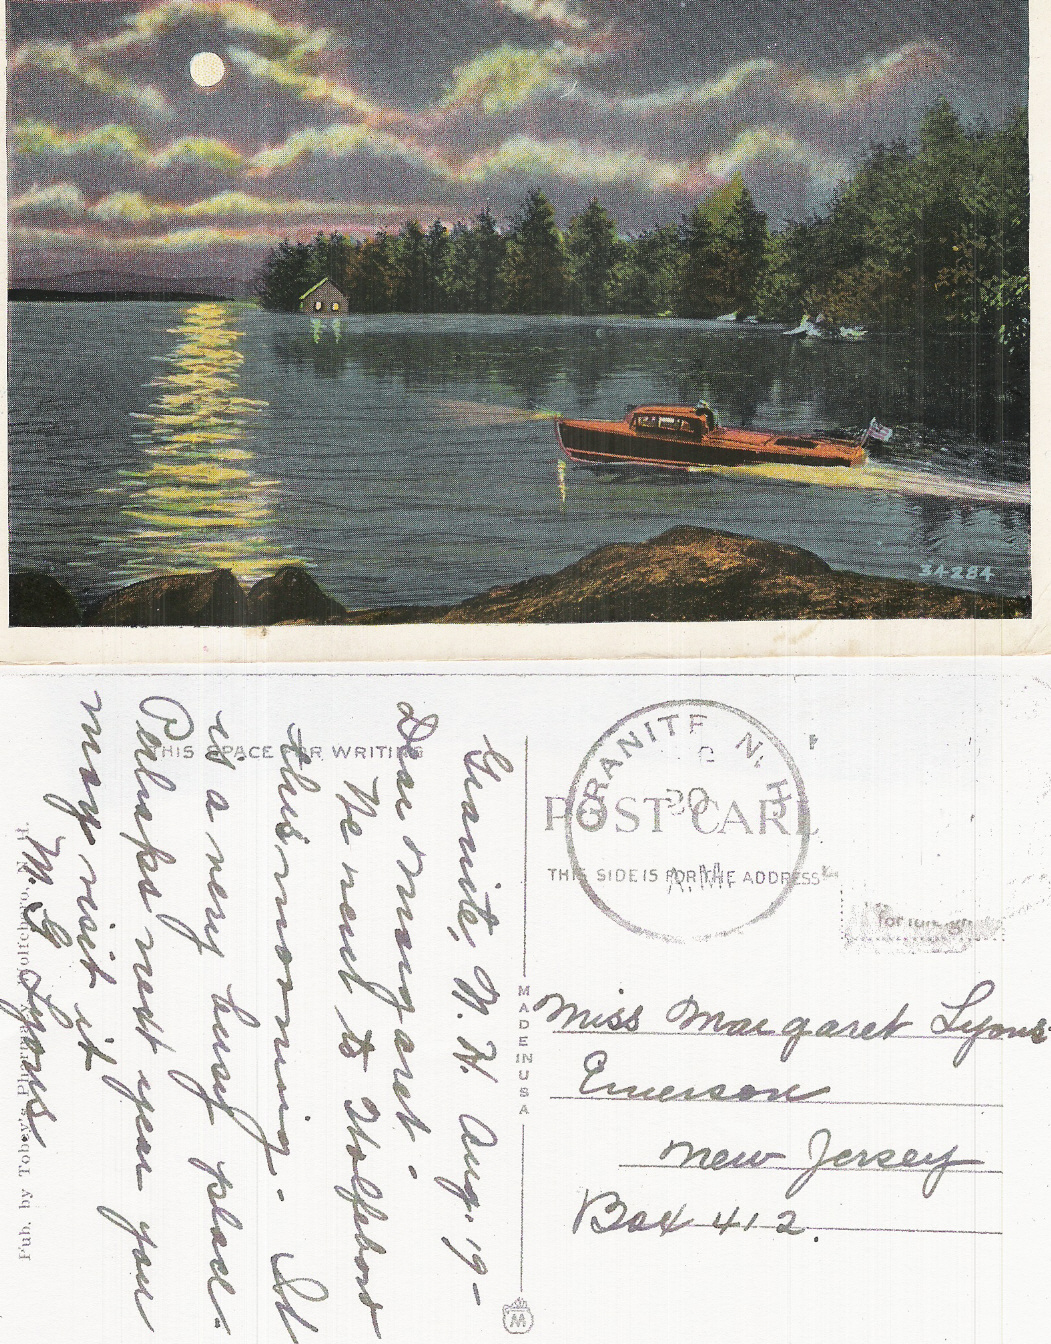 3A-284
THIS SPACE FOR WRITING
Granite, N. H. Aug. 19-
Dear Margaret.
We went to Wolfboro
this morning. It
is a very busy place.
Perhaps next year you
may visit it
M. G. Lyons
Pub. by Tobey's Pharmacy, Wolfeboro, N. H.
MADE IN USA
GRANITE N. H.
20
A.M.
POST CARD
THIS SIDE IS FOR THE ADDRESS
Miss Margaret Lyons
Emerson
New Jersey
Box 412.
M